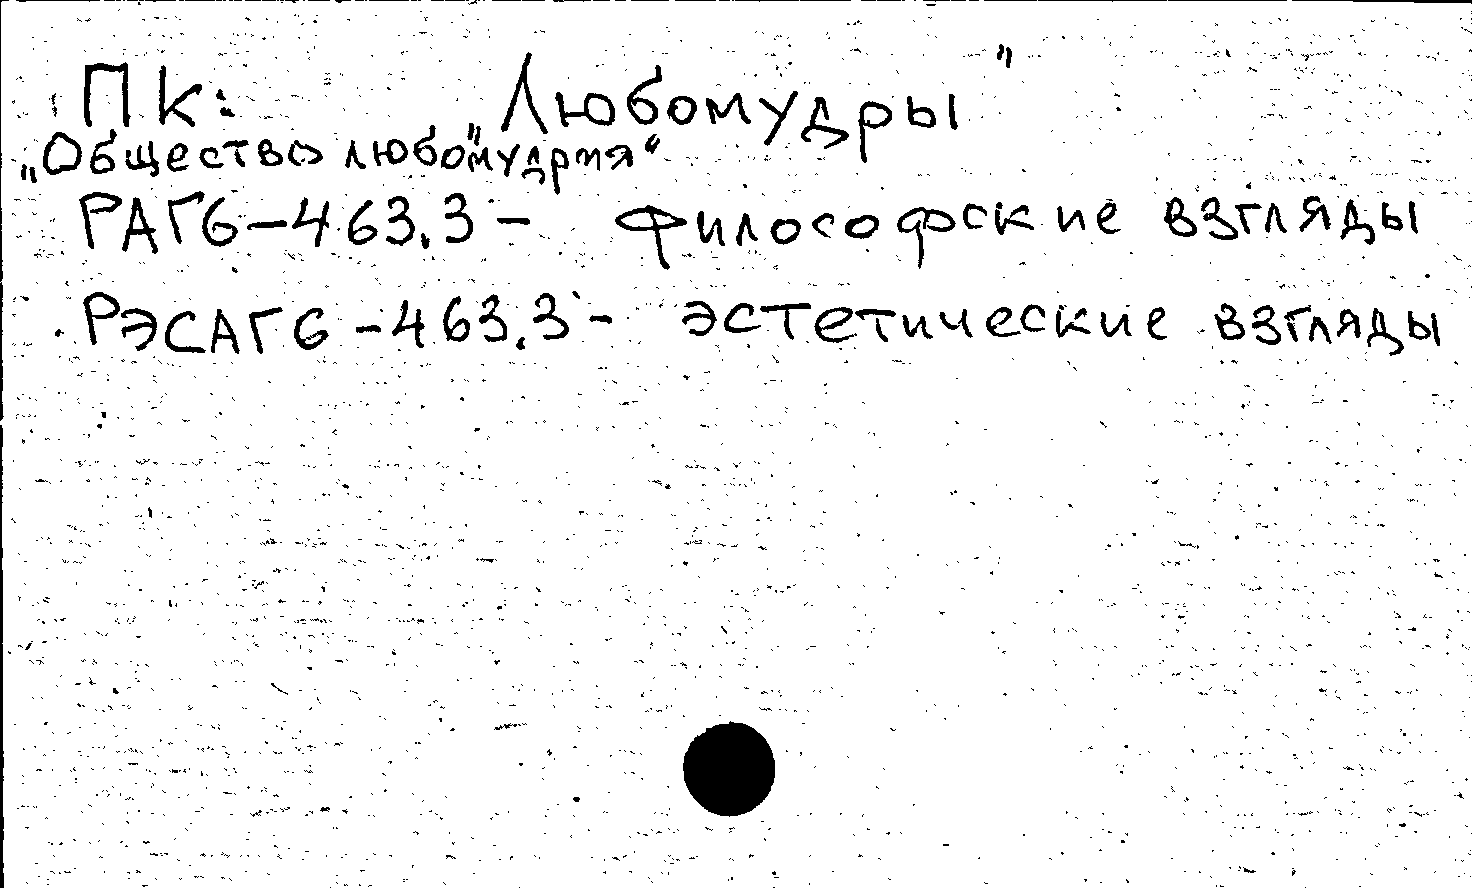 ПК: "Любомудры"
„Общество любомудрия“
РАГ6-463.3 - философские взгляды
РЭСАГ6-463.3 - эстетические взгляды